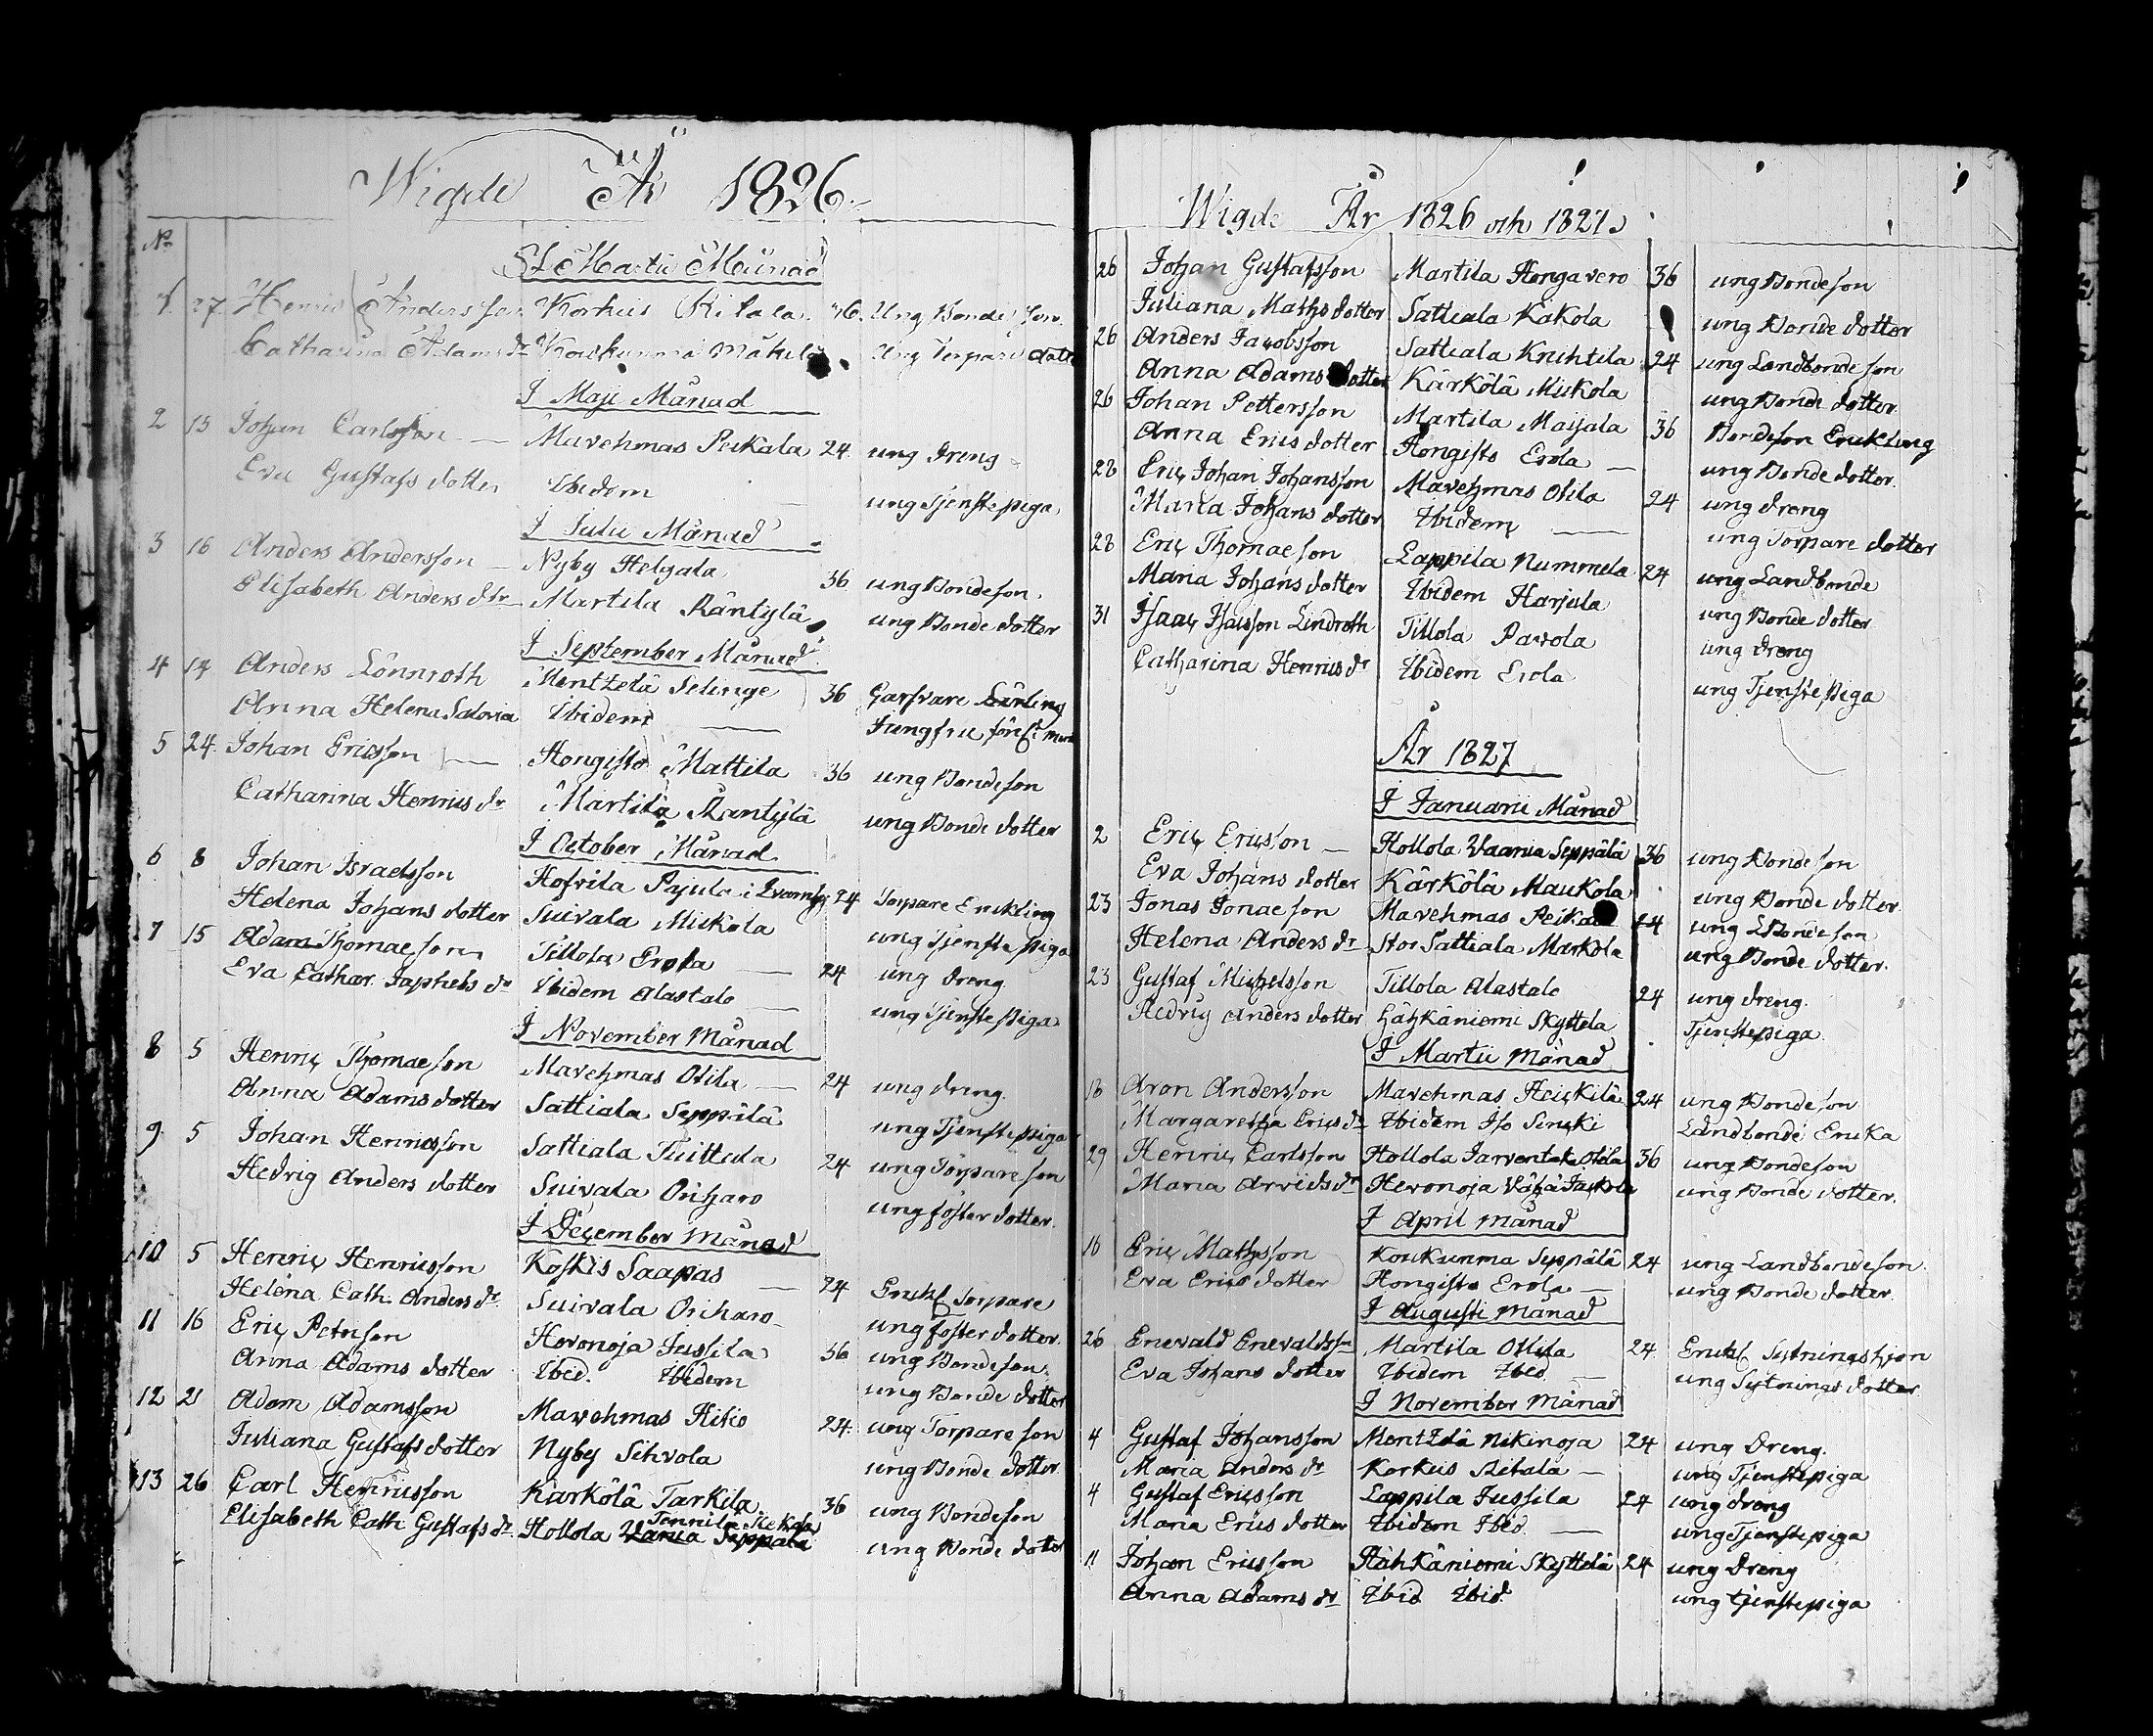 Wigde År 1826
No
I Martii Månad
1 27. Henric Andersson Korkis Ritala 36. Ung Bonde son.
Catharina Adams dr Koukunma Mäkilä Ung Torpare dotter
I Maji Månad
2 15 Johan Carlsson Mavehmas Peikala 24 ung dreng
Eva Gustafs dotter Ibidem ung Tjenste piga
I Julii Månad
3 16 Anders Andersson Nyby Helgala 36 ung Bondeson.
Elisabeth Anders dtr Martila Räntylä ung Bonde dotter
I September Månad
4 14 Anders Lönnroth Mentzelä Selinge 36 Garfvare Lärling
Anna Helena Salovia Ibidem Jungfru
5 24. Johan Ericsson Hongisto Mattila 36 ung Bondeson
Catharina Henrics dr Martila Rantylä ung Bonde dotter
I October Månad
6 8 Johan Israelsson Hofvila Pajula i 24 Torpare Enckling
Helena Johans dotter Suivala Mickola ung Tjenste piga
7 15 Adam Thomaeson Tillola Erola 24 ung dreng.
Eva Cathar. Japhets dr Ibidem Alastalo ung Tjenste piga
I November Månad
8 5 Henric Thomaeson Mavehmas Otila 24 ung dreng.
Anna Adams dotter Sattiala Seppälä ung Tjenste piga
9 5 Johan Henricsson Sattiala Tuittula 24 ung Torpare son
Hedvig Anders dotter Suivala Oriharo ung foster dotter.
I December Månad
10 5 Henric Henricsson Koskis Saapas 24 Enckl Torpare
Helena Cath. Anders dr Suivala Oriharo ung foster dotter.
11 16 Eric Petrison Heronoja Jussila 36 ung Bondeson.
Anna Adams dotter Ibid. Ibidem ung Bonde dotter
12 21 Adam Adamsson Mavehmas Hitio 24. ung Torpare son
Juliana Gustafs dotter Nyby Sihvola ung Bonde dotter.
13 26 Carl Henricsson Karkölä Tarkila 36 ung Bondeson
Tennilä Mekola
Elisabeth Cath Gustafs dr Hollola Vania Seppälä ung Bonde dotter
Wigde År 1826 och 1827.
26 Johan Gustafsson Martila Hongavero 36 ung Bondeson
Juliana Maths dotter Sattiala Kakola ung Bonde dotter
26 Anders Jacobsson Sattiala Kruhtila 24 ung Landbonde son
Anna Adams dotter Kärkölä Mickola ung Bonde dotter.
26 Johan Pettersson Martila Maijala 36 Bondeson Enckling
Anna Erics dotter Hongisto Erola ung Bonde dotter.
28 Eric Johan Johansson Mavehmas Otila 24 ung dreng
Maria Johans dotter Ibidem ung Torpare dotter
28 Eric Thomaeson Lappila Nummela 24 ung Landbonde
Maria Johans dotter Ibidem Harjula ung Bonde dotter
31 Isaac Isacsson Lindroth Tillola Pavola ung dreng
Catharina Henrics dr Ibidem Erola ung Tjenste Piga
År 1827
I Januarii Månad
2 Eric Ericsson Hollola Vaania Seppälä 36 ung Bonde son
Eva Johans dotter Kärkölä Maukola ung Bonde dotter
23 Jonas Jonaeson Mavehmas 24 ung LBonde son
Helena Anders dr Stor Sattiala Markola ung Bonde dotter.
23 Gustaf Michelsson Tillola Alastalo 24 ung dreng.
Hedvig Anders dotter Hähkäniemi Skyttela Tjenstepiga.
I Martii Månad
18 Aron Andersson Mavehmas Heickilä 24 ung Bondeson
Margaretha Erics dr Ibidem Iso Seucki Landbonde Encka
29 Henric Carlsson Hollola Jarventaka Otila 36 ung Bondeson
Maria Arvids dr Heronoja Vähä Jackola ung Bonde dotter.
I April Månad
16 Eric Mathsson Koukunma Seppälä 24 ung Landbondeson.
Eva Erics dotter Hongisto Erola ung Bonde dotter.
I Augusti Månad
26 Enevald Enevaldsson Martila Ollila 24. Enckl Sytningshjon
Eva Johans dotter Ibidem Ibid. ung Sytnings dotter.
I November Månad
4 Gustaf Johansson Mentzelä Nikinoja 24 ung Dreng.
Maria Anders dr Korkis Ritala ung Tjenstepiga
4 Gustaf Ericsson Lappila Jussila 24 ung dreng
Maria Erics dotter Ibidem Ibid. ung Tjenstepiga
11 Johan Ericsson Hähkäniemi Skyttelä 24 ung Dreng
Anna Adams dr Ibid Ibid. ung tjenstepiga